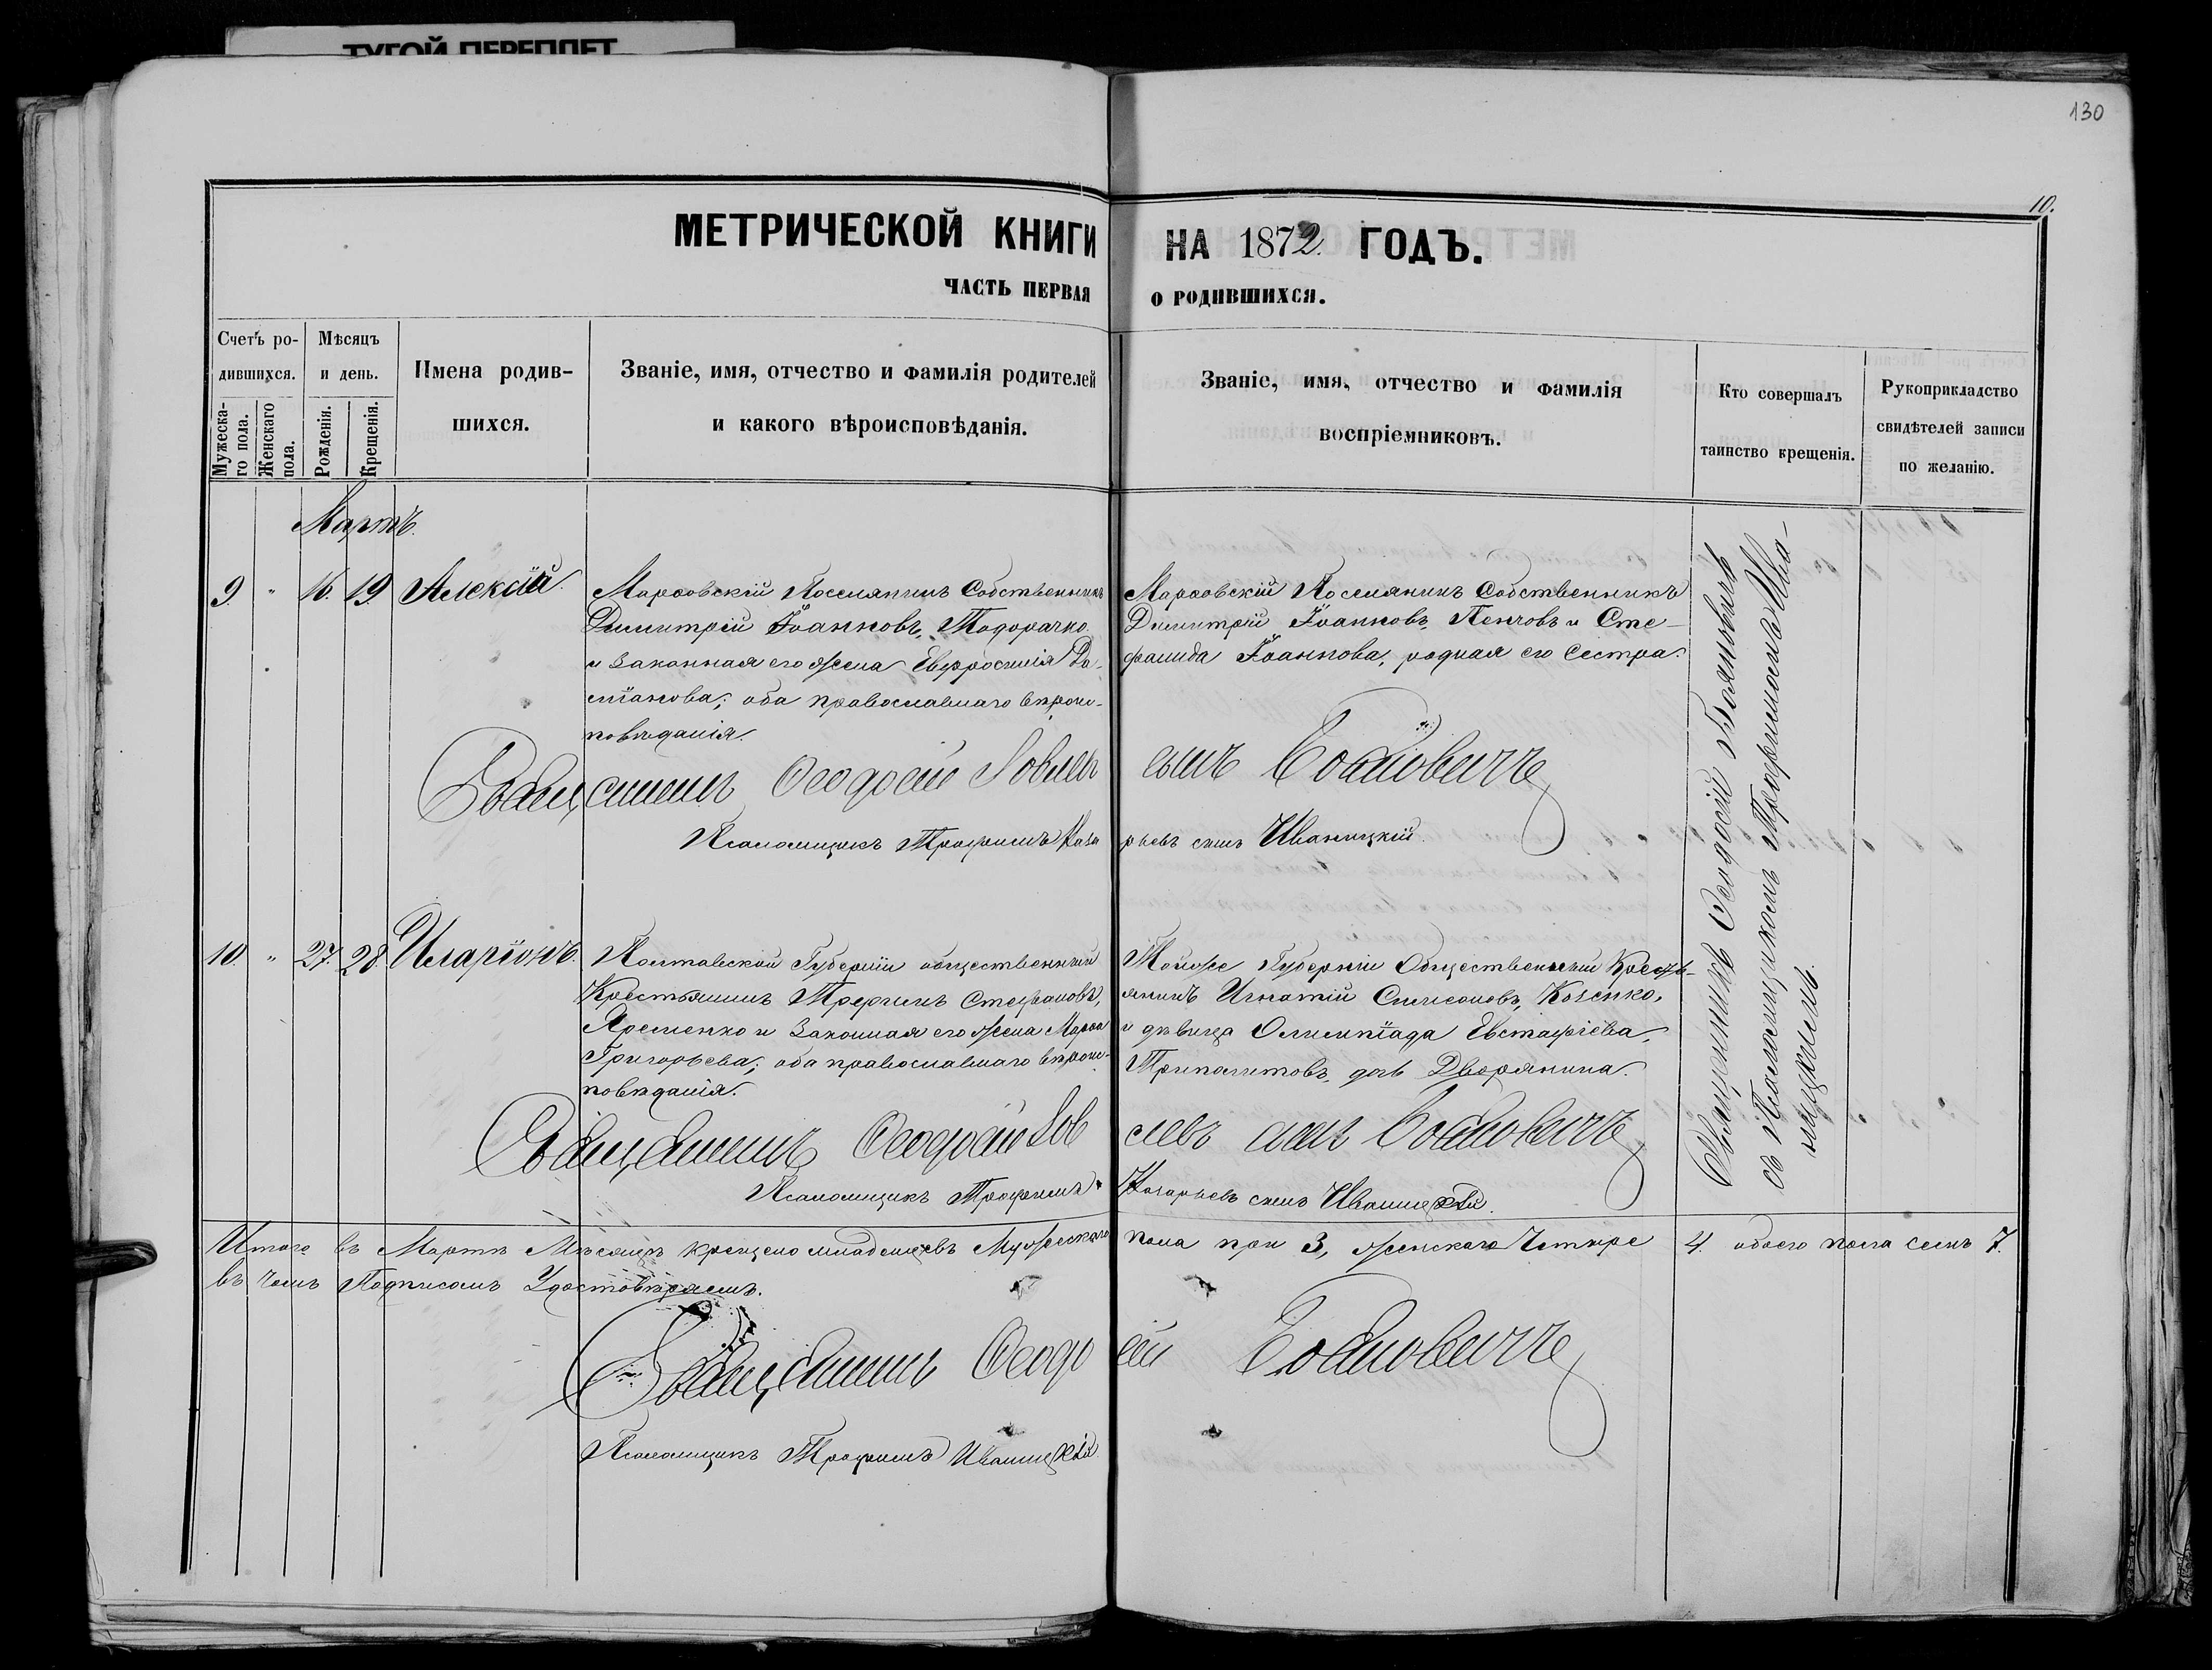 ТУГОЙ ПЕРЕПЛЕТ
130
10.
МЕТРИЧЕСКОЙ КНИГИ НА 1872 ГОДЪ.
ЧАСТЬ ПЕРВАЯ О РОДИВШИХСЯ.
Счетъ ро-
дившихся.
Мужеска-
го пола.
Женскаго
пола.
Мѣсяцъ
и день.
Рожденія.
Крещенія.
Имена родив-
шихся.
Званіе, имя, отчество и фамилія родителей
и какого вѣроисповѣданія.
Званіе, имя, отчество и фамилія
воспріемниковъ.
Кто совершалъ
таинство крещенія.
Рукоприкладство
свидѣтелей записи
по желанію.
Мартъ.
9. " 16. 19. Алексій.
Поселянинъ Собственникъ
Димитрій Іоанновъ, Тодорачко
и законная его жена Евфросинія Да-
міанова; оба православнаго вѣроис-
повѣданія.
Поселянинъ Собственникъ
Димитрій Іоанновъ, Пенчовъ и Сте-
фанида Іоаннова, родная его сестра.
Священникъ Ѳеодосій Іовлевъ сынъ Бояновичъ
Псаломщикъ Трофимъ Назарьевъ сынъ Иваницкій.
10. " 27. 28. Иларіонъ.
Полтавской Губерніи общественный
Крестьянинъ Стефановъ,
Яременко и законная его жена Марѳа
Григорьева; оба православнаго вѣроис-
повѣданія.
Тойже Губерніи Общественный Кресть-
янинъ Игнатій Симеоновъ, Козенко,
и дѣвица Олимпіада Евстафіева,
Триполитовъ, дочь Дворянина.
Священникъ Ѳеодосій Іовлевъ сынъ Бояновичъ
Псаломщикъ Трофимъ Назарьевъ сынъ Иваницкій.
Священникъ Ѳеодосій Бояновичъ
съ Псаломщикомъ Трофимомъ Ива-
ницкимъ.
Итого въ Мартѣ Мѣсяцѣ крещено младенцевъ Мужескаго пола три 3, женскаго Четыре 4. обоего пола семь 7.
въ чемъ Подписомъ Удостовѣряемъ.
Священникъ Ѳеодосій Бояновичъ
Псаломщикъ Трофимъ Иваницкій.